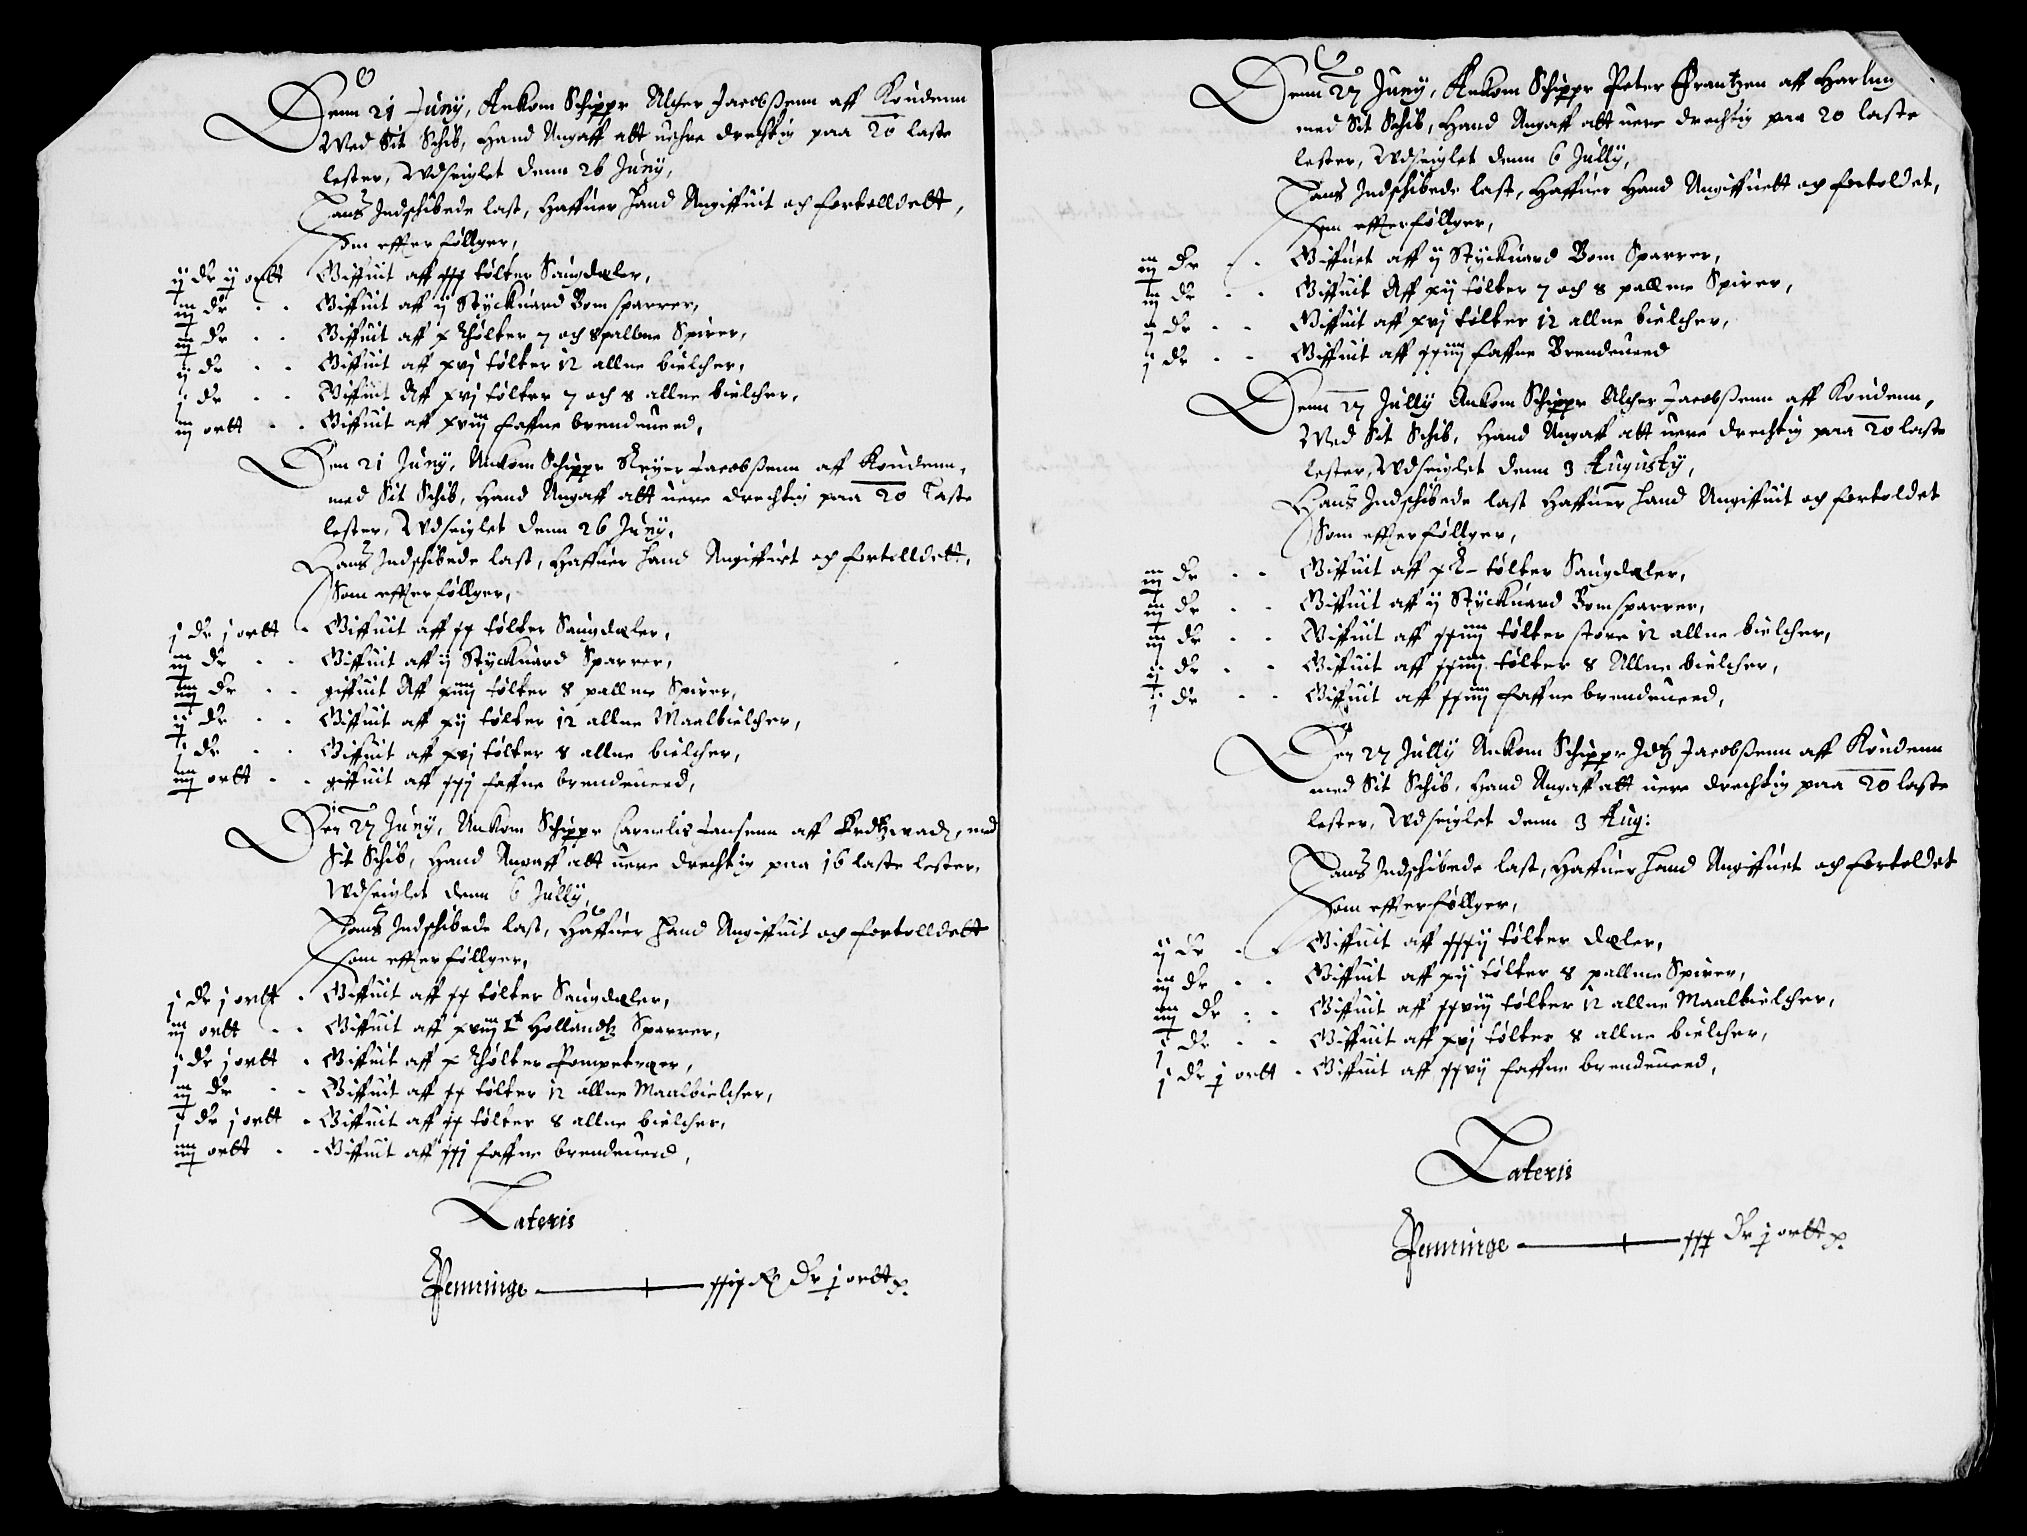 Denn 21 Juny, Ankom Schippr Alcher Jacobßenn aff Koudenn
Med Sit Schib, Hand Angaff att uehre drechtig paa 20 laste
lester, Udseiglet denn 26 Juny,
Hans Indschibede last, Haffuer Hand Angiffuit och fortolldett,
Som effterföllger,
ij dr ij ortt Giffuit aff xxx tölter Saugdæler,
iij dr - - Giffuit aff ij Styckuard Bom sparrer,
iij dr - - Giffuit aff x thölter 7 och 8 pallme Spirer,
ij dr - - Giffuit aff xvj tölter 12 allne bielcher,
j dr - - Giffuit Aff xvj tölter 7 och 8 allne bielcher,
iij ortt - - Giffuit aff xviij faffne brendeued,
Den 21 Juny, Ankom Schippr Reyer Jacobßenn aff Koudenn,
med Sit Schib, Hand Angaff att uere drechtig paa 20 Laste
lester, Udseiglet denn 26 Juny,
Hans Indschibede last, Haffuer Hand Angiffuet och fortolldett,
Som effterföllger,
j dr j ortt - Giffuit aff xx tölter Saugdæler,
iij dr - - Giffuit aff ij Styckuard Sparrer,
iiij dr - - giffuit Aff xiiij tölter 8 pallme Spirer,
ij dr - - Giffuit aff xij tölter 12 allne Maalbielcher,
j dr - - Giffuit aff xvj tölter 8 allne bielcher,
iiij ortt - - giffuit aff xxj faffne brendeued,
Den 27 Juny, Ankom Schippr Cornelis Jansenn aff, med
Sit Schib, Hand Angaff att uere drechtig paa 16 laste lester,
Udseiglet denn 6 Jully,
Hans Indschibede last, Haffuer Hand Angiffuit och fortolldett
Som effterföllger,
j dr j ortt - Giffuit aff xx tölter Saugdæler,
iij ortt - - Giffuit aff xviij Hollandtz Sparrer,
j dr j ortt - Giffuit aff x thölter Pompetræer,
iij dr - - Giffuit aff xx tölter 12 allne Maalbielcher,
j dr j ortt - Giffuit aff xx tölter 8 allne bielcher,
iiij ortt - - Giffuit aff xxj faffne brendeued,
Lateris
Penninge — xxij dr j ortt
Denn 27 Juny, Ankom Schippr Peter Frantzen aff Harling
med Sit Schib, Hand Angaff att uere drechtig paa 20 laste
lester, Udseiglet denn 6 Jully,
Hans Indschibede last, Haffuer Hand Angiffuett och fortoldet,
Som effterföllger,
iij dr - - Giffuet aff ij Styckuard Bom Sparrer,
iij dr - - Giffuit Aff xij tölter 7 och 8 pallme Spirer,
ij dr - - Giffuit aff xvj tölter 12 allne bielcher,
j dr - - Giffuit aff xxiiij faffne Brendeued
Denn 27 Jully Ankom Schippr Alcher Jacobßenn aff Koudenn,
Med Sit Schib, Hand Angaff att uere drechtig paa 20 laste
lester, Udseiglet denn 3 Augusty,
Hans Indschibede last Haffuer Hand Angiffuit och fortoldet
Som effterföllger,
iij dr - - Giffuit aff tölter Saugdæler,
iij dr - - Giffuit aff ij Styckuard Bomsparrer,
iij dr - - Giffuit aff xxiiij tölter store 12 allne bielcher,
ij dr - - Giffuit aff xxiiij tölter 8 Allne bielcher,
j dr - - Giffuit aff xxiiij faffne brendeued,
Den 27 Jully Ankom Schippr Jacobßenn aff Koudenn
med Sit Schib, Hand Angaff att uere drechtig paa 20 laste
lester, Udseiglet denn 3 Aug:
Hans Indschibede last, Haffuer Hand Angiffuet och fortoldet
Som effterföllger,
ij dr - - Giffuit aff xxxij tölter dæler,
iij dr - - Giffuit aff xij tölter 8 pallme Spirer,
iiij dr - - Giffuit aff xxvij tölter 12 allne Maalbielcher,
j dr - - Giffuit aff xvj tölter 8 allne bielcher,
j dr j ortt - Giffuit aff xxvij faffne brendeued,
Lateris
Penninge — xxx dr j ortt